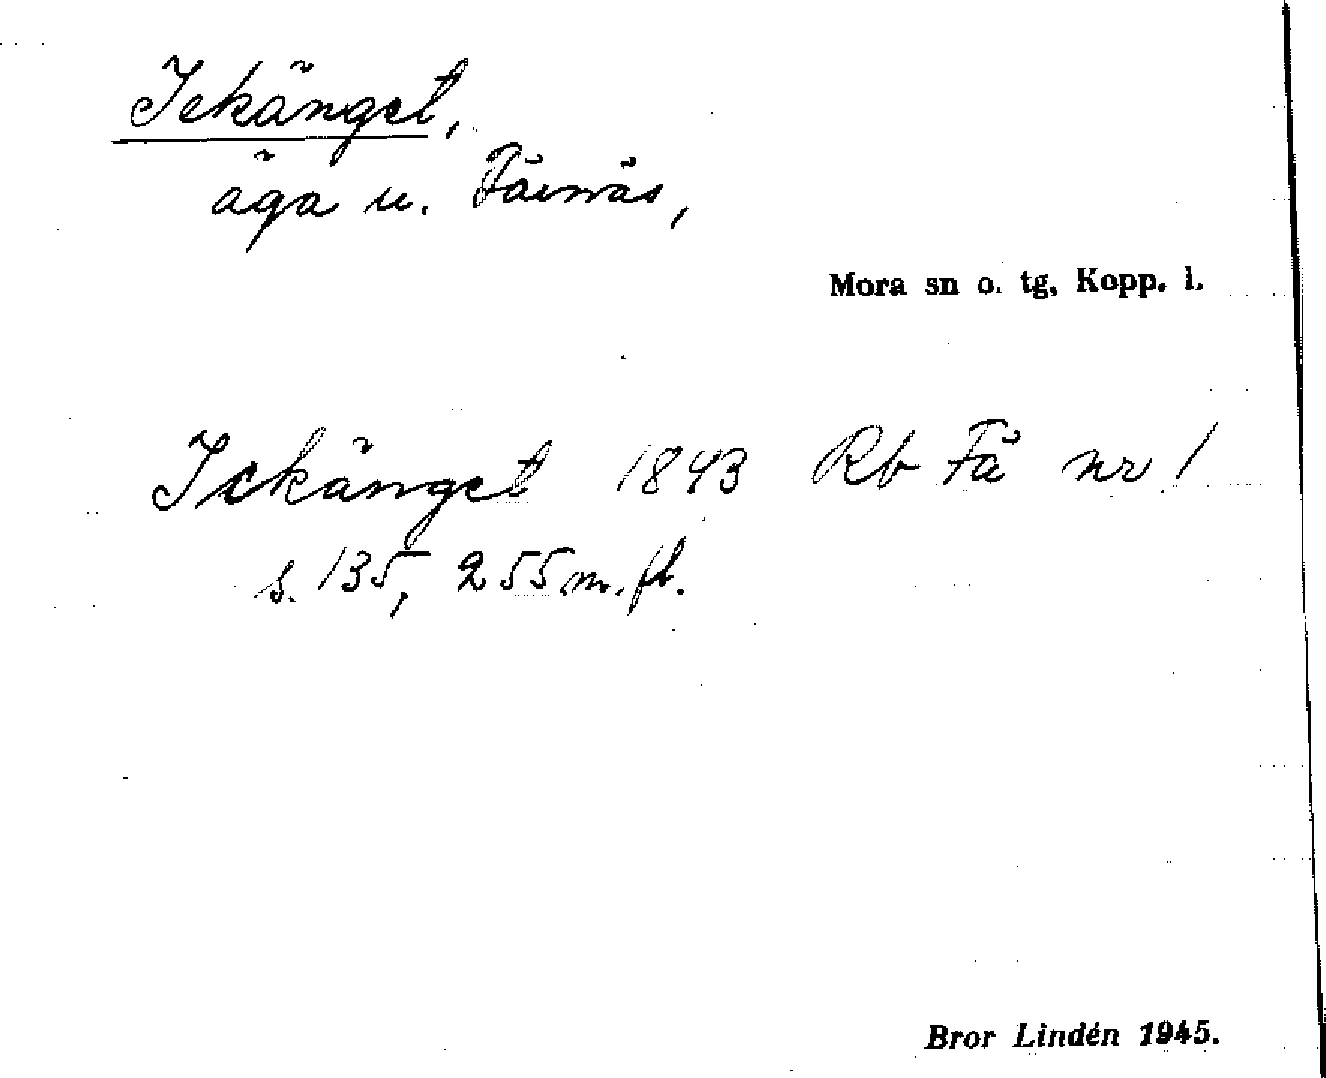 Ickänget,
äga u. Färnäs,
Mora sn o. tg, Kopp. l.
Ickänget 1843 Rb Fä nr 1
s. 135, 255 m. fl.
Bror Lindén 1945.